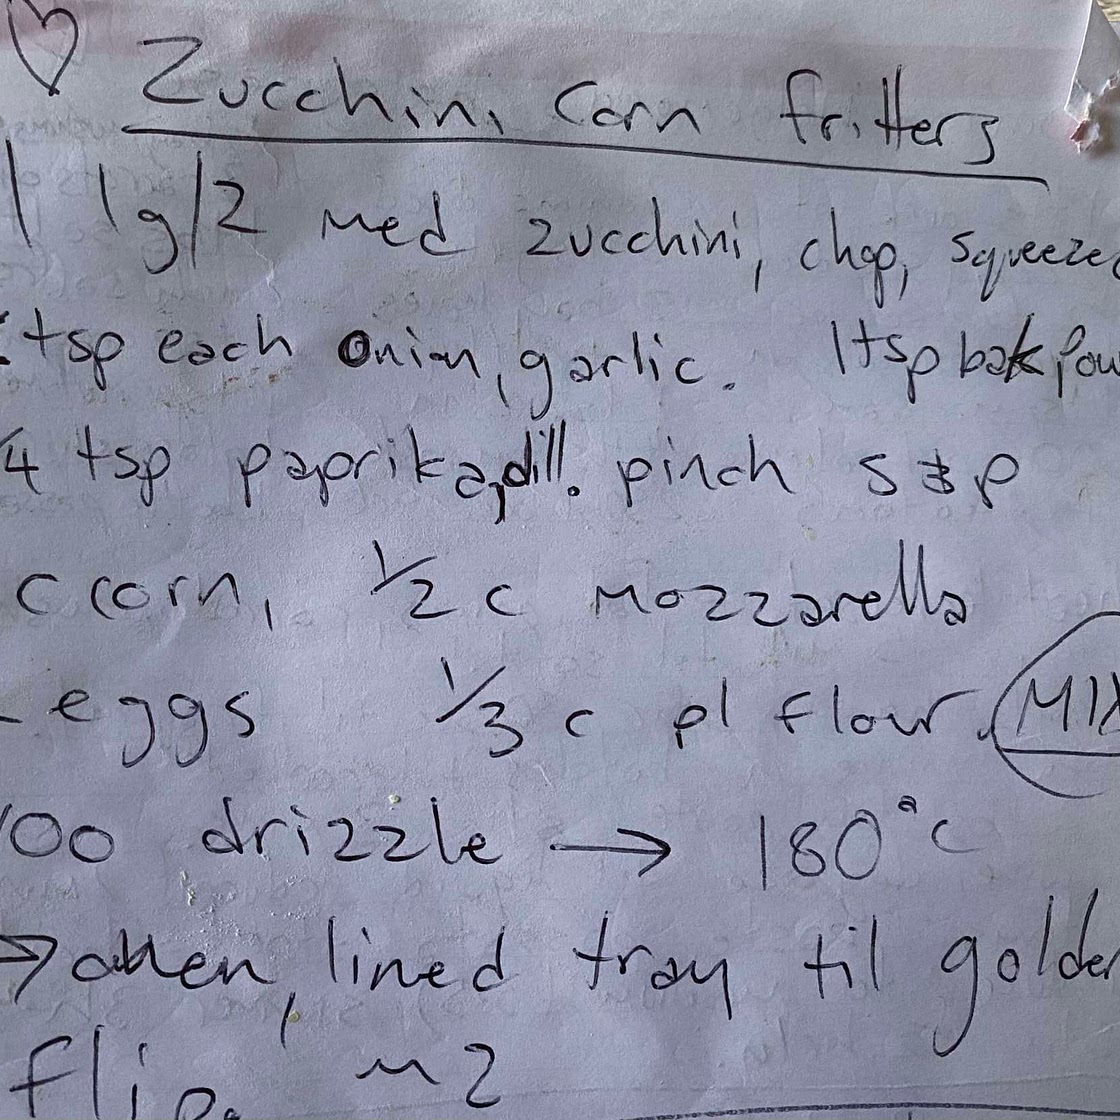 Zucchini Corn fritters
1 lg/2 med zucchini, chop, squeezed
tsp each onion, garlic. 1tsp bak pow
/4 tsp paprika, dill. pinch s & p
c corn, 1/2 c mozzarella
eggs 1/3 c pl flour. MIX
drizzle → 180°c
→ lined tray til golden
flip.